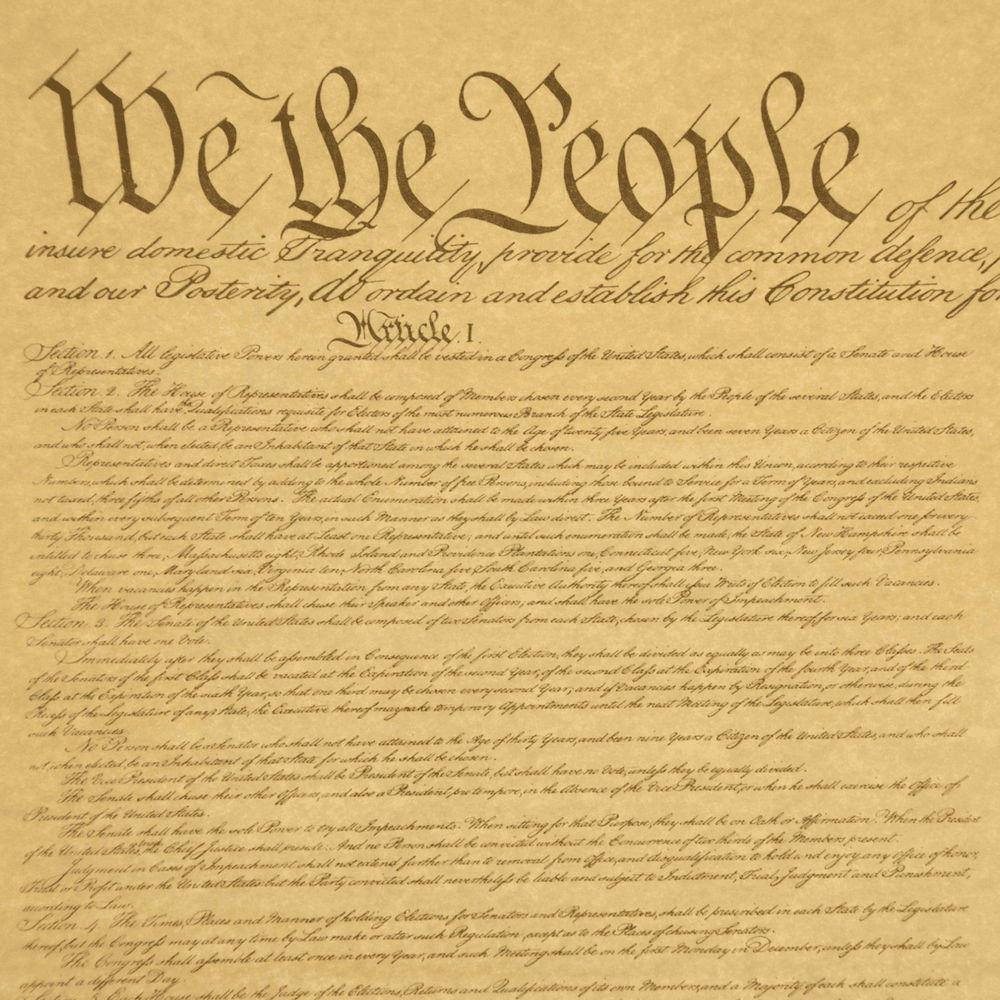 We the People of the
insure domestic Tranquility, provide for the common defence,
and our Posterity, do ordain and establish this Constitution for
Article. I.
Section. 1. All legislative Powers herein granted shall be vested in a Congress of the United States, which shall consist of a Senate and House
of Representatives.
Section. 2. The House of Representatives shall be composed of Members chosen every second Year by the People of the several States, and the Electors
in each State shall have the Qualifications requisite for Electors of the most numerous Branch of the State Legislature.
No Person shall be a Representative who shall not have attained to the Age of twenty five Years, and been seven Years a Citizen of the United States,
and who shall not, when elected, be an Inhabitant of that State in which he shall be chosen.
Representatives and direct Taxes shall be apportioned among the several States which may be included within this Union, according to their respective
Numbers, which shall be determined by adding to the whole Number of free Persons, including those bound to Service for a Term of Years, and excluding Indians
not taxed, three fifths of all other Persons. The actual Enumeration shall be made within three Years after the first Meeting of the Congress of the United States,
and within every subsequent Term of ten Years, in such Manner as they shall by Law direct. The Number of Representatives shall not exceed one for every
thirty Thousand, but each State shall have at Least one Representative; and until such enumeration shall be made, the State of New Hampshire shall be
entitled to chuse three, Massachusetts eight, Rhode Island and Providence Plantations one, Connecticut five, New York six, New Jersey four, Pennsylvania
eight, Delaware one, Maryland six, Virginia ten, North Carolina five, South Carolina five, and Georgia three.
When vacancies happen in the Representation from any State, the Executive Authority thereof shall issue Writs of Election to fill such Vacancies.
The House of Representatives shall chuse their Speaker and other Officers; and shall have the sole Power of Impeachment.
Section. 3. The Senate of the United States shall be composed of two Senators from each State, chosen by the Legislature thereof, for six Years; and each
Senator shall have one Vote.
Immediately after they shall be assembled in Consequence of the first Election, they shall be divided as equally as may be into three Classes. The Seats
of the Senators of the first Class shall be vacated at the Expiration of the second Year, of the second Class at the Expiration of the fourth Year, and of the third
Class at the Expiration of the sixth Year, so that one third may be chosen every second Year; and if Vacancies happen by Resignation, or otherwise, during the
Recess of the Legislature of any State, the Executive thereof may make temporary Appointments until the next Meeting of the Legislature, which shall then fill
such Vacancies.
No Person shall be a Senator who shall not have attained to the Age of thirty Years, and been nine Years a Citizen of the United States, and who shall
not, when elected, be an Inhabitant of that State for which he shall be chosen.
The Vice President of the United States shall be President of the Senate, but shall have no Vote, unless they be equally divided.
The Senate shall chuse their other Officers, and also a President pro tempore, in the Absence of the Vice President, or when he shall exercise the Office of
President of the United States.
The Senate shall have the sole Power to try all Impeachments. When sitting for that Purpose, they shall be on Oath or Affirmation. When the President
of the United States is tried, the Chief Justice shall preside: And no Person shall be convicted without the Concurrence of two thirds of the Members present.
Judgment in Cases of Impeachment shall not extend further than to removal from Office, and disqualification to hold and enjoy any Office of honor,
Trust or Profit under the United States: but the Party convicted shall nevertheless be liable and subject to Indictment, Trial, Judgment and Punishment,
according to Law.
Section. 4. The Times, Places and Manner of holding Elections for Senators and Representatives, shall be prescribed in each State by the Legislature
thereof; but the Congress may at any time by Law make or alter such Regulation, except as to the Places of chusing Senators.
The Congress shall assemble at least once in every Year, and such Meeting shall be on the first Monday in December, unless they shall by Law
appoint a different Day.
Section. 5. Each House shall be the Judge of the Elections, Returns and Qualifications of its own Members, and a Majority of each shall constitute a